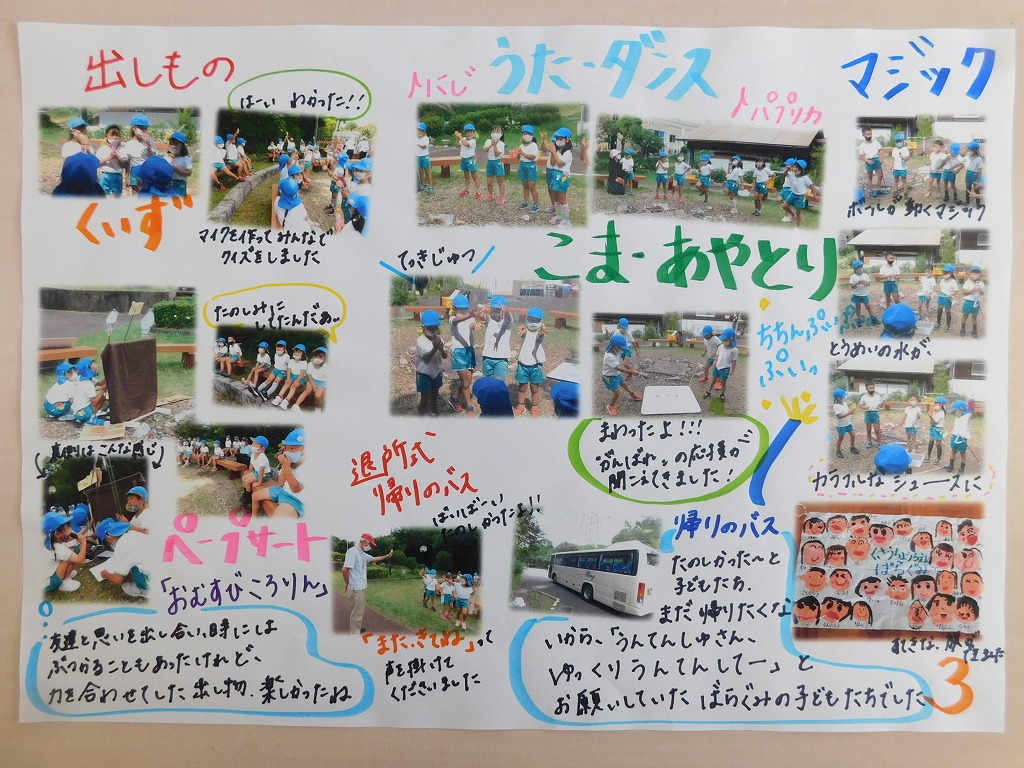 出しもの
はーい わかった!!
くいず
マイクを作ってみんなで
クイズをしました
♪にじ
うた・ダンス
♪パプリカ
マジック
ボールが動くマジック
てっきじゅつ
こま・あやとり
ちちんぷいぷい
ぷいっ
とうめいの水が、
カラフルなジュースに
たのしみに
してたんだあ。
裏側はこんな感じ
ペープサート
「おむすびころりん」
まわったよ!!!
がんばれ〜の応援が
聞こえてきました!
退所式
帰りのバス
ばいばーい
たのしかったよ!!
「また、きてね」って
声を掛けて
くださいました
友達と思いを出し合い、時には
ぶつかることもあったけれど、
力を合わせてした出し物、楽しかったね
帰りのバス
たのしかった〜と
子どもたち。
まだ帰りたくな
いから、「うんてんしゅさん、
ゆっくりうんてんしてー」と
お願いしていたばらぐみの子どもたちでした
ばらぐみ
すてきな、旗が
3